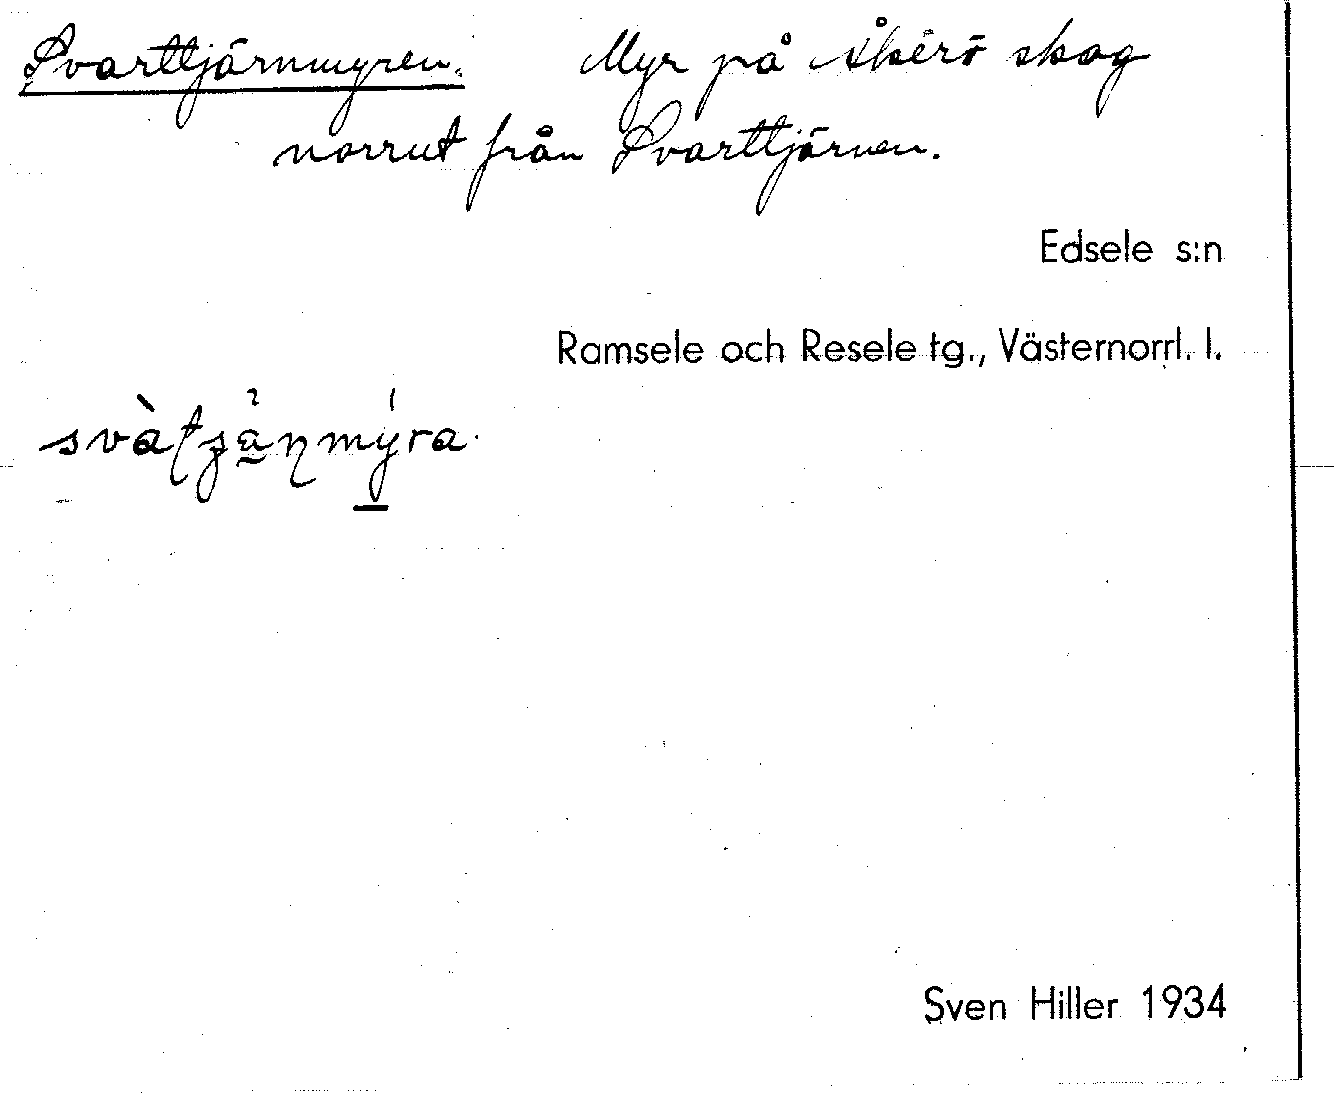 Svarttjärnmyren. Myr på Åkerö skog
norrut från Svarttjärnen.
Edsele s:n
Ramsele och Resele tg., Västernorrl. l.
Sven Hiller 1934